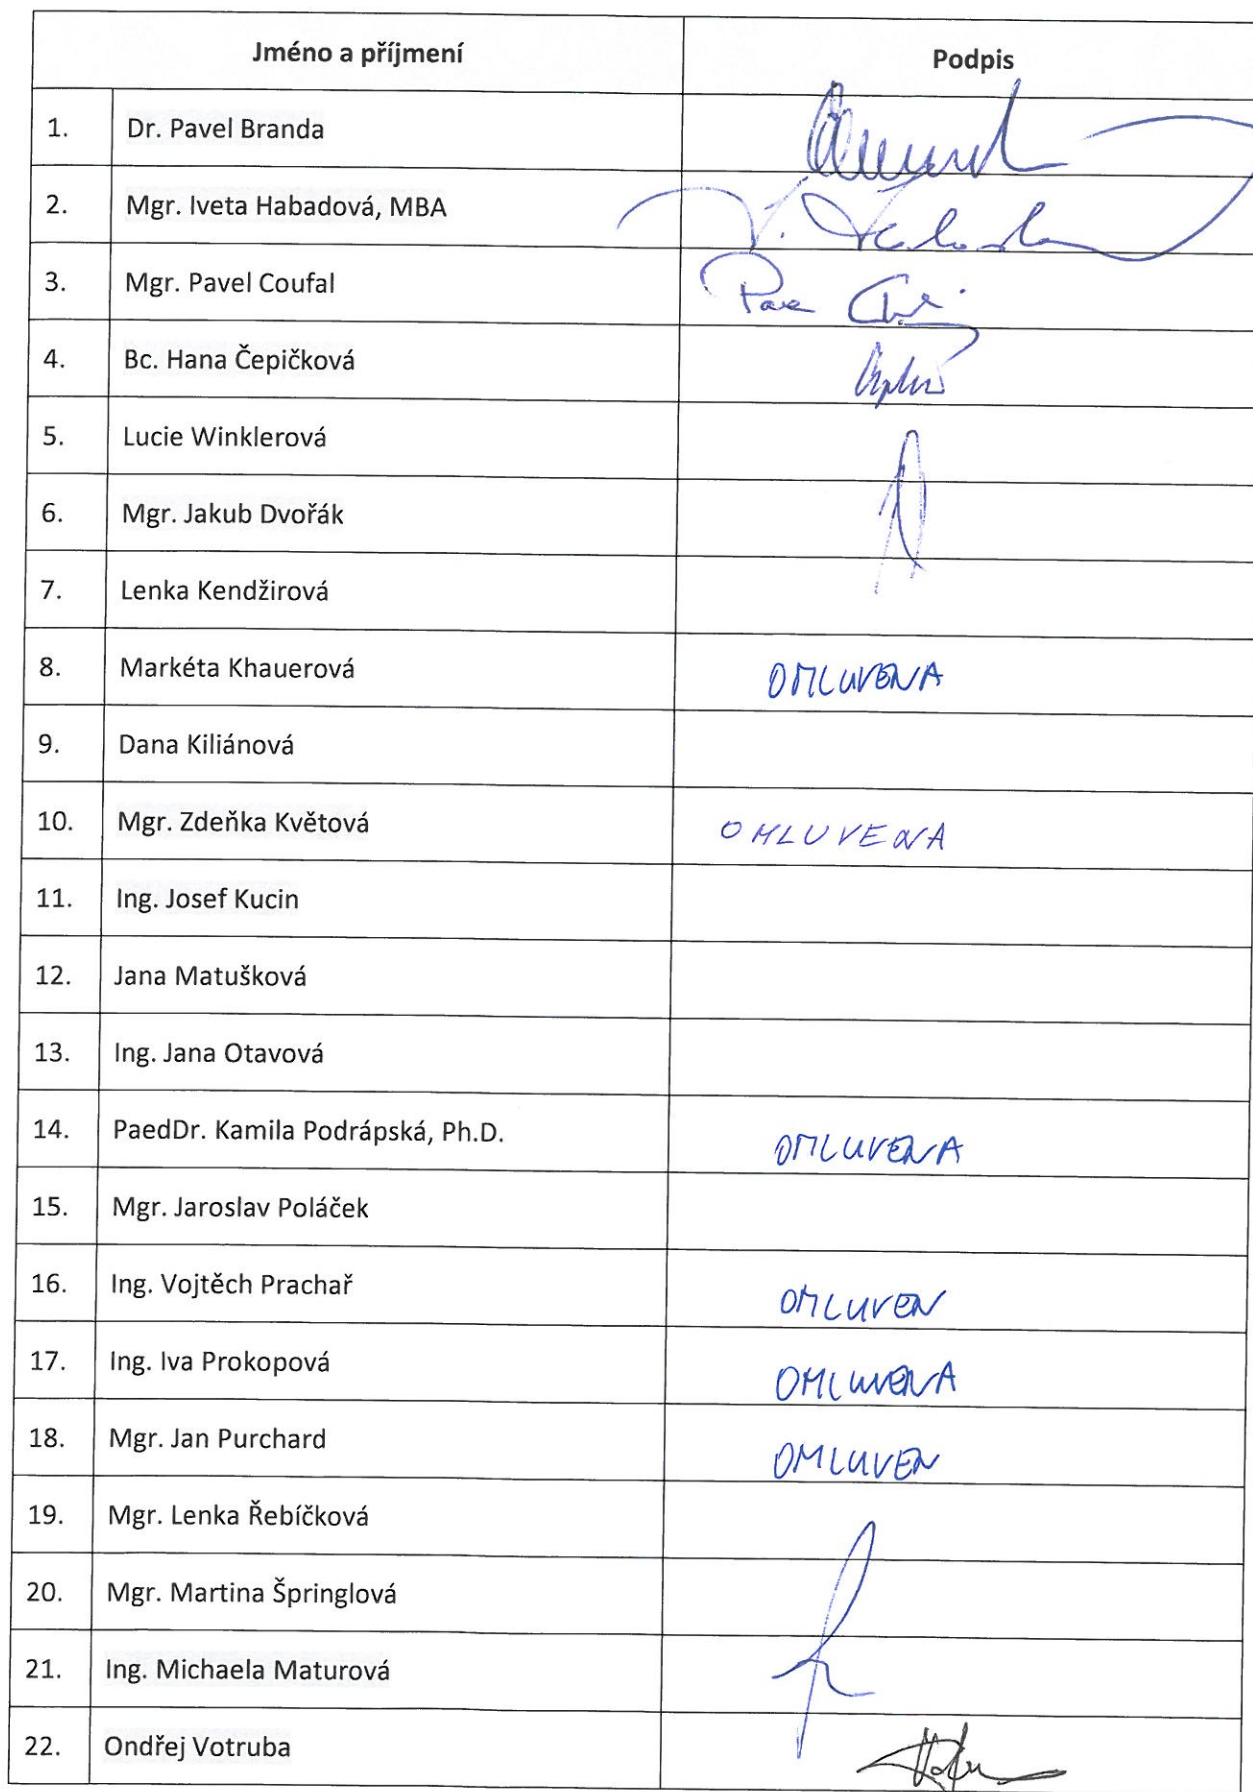 Jméno a příjmení Podpis
1. Dr. Pavel Branda
2. Mgr. Iveta Habadová, MBA
3. Mgr. Pavel Coufal
4. Bc. Hana Čepičková
5. Lucie Winklerová
6. Mgr. Jakub Dvořák
7. Lenka Kendžirová
8. Markéta Khauerová OMLUVENA
9. Dana Kiliánová
10. Mgr. Zdeňka Květová OMLUVENA
11. Ing. Josef Kucin
12. Jana Matušková
13. Ing. Jana Otavová
14. PaedDr. Kamila Podrápská, Ph.D. OMLUVENA
15. Mgr. Jaroslav Poláček
16. Ing. Vojtěch Prachař OMLUVEN
17. Ing. Iva Prokopová OMLUVENA
18. Mgr. Jan Purchard OMLUVEN
19. Mgr. Lenka Řebíčková
20. Mgr. Martina Špringlová
21. Ing. Michaela Maturová
22. Ondřej Votruba